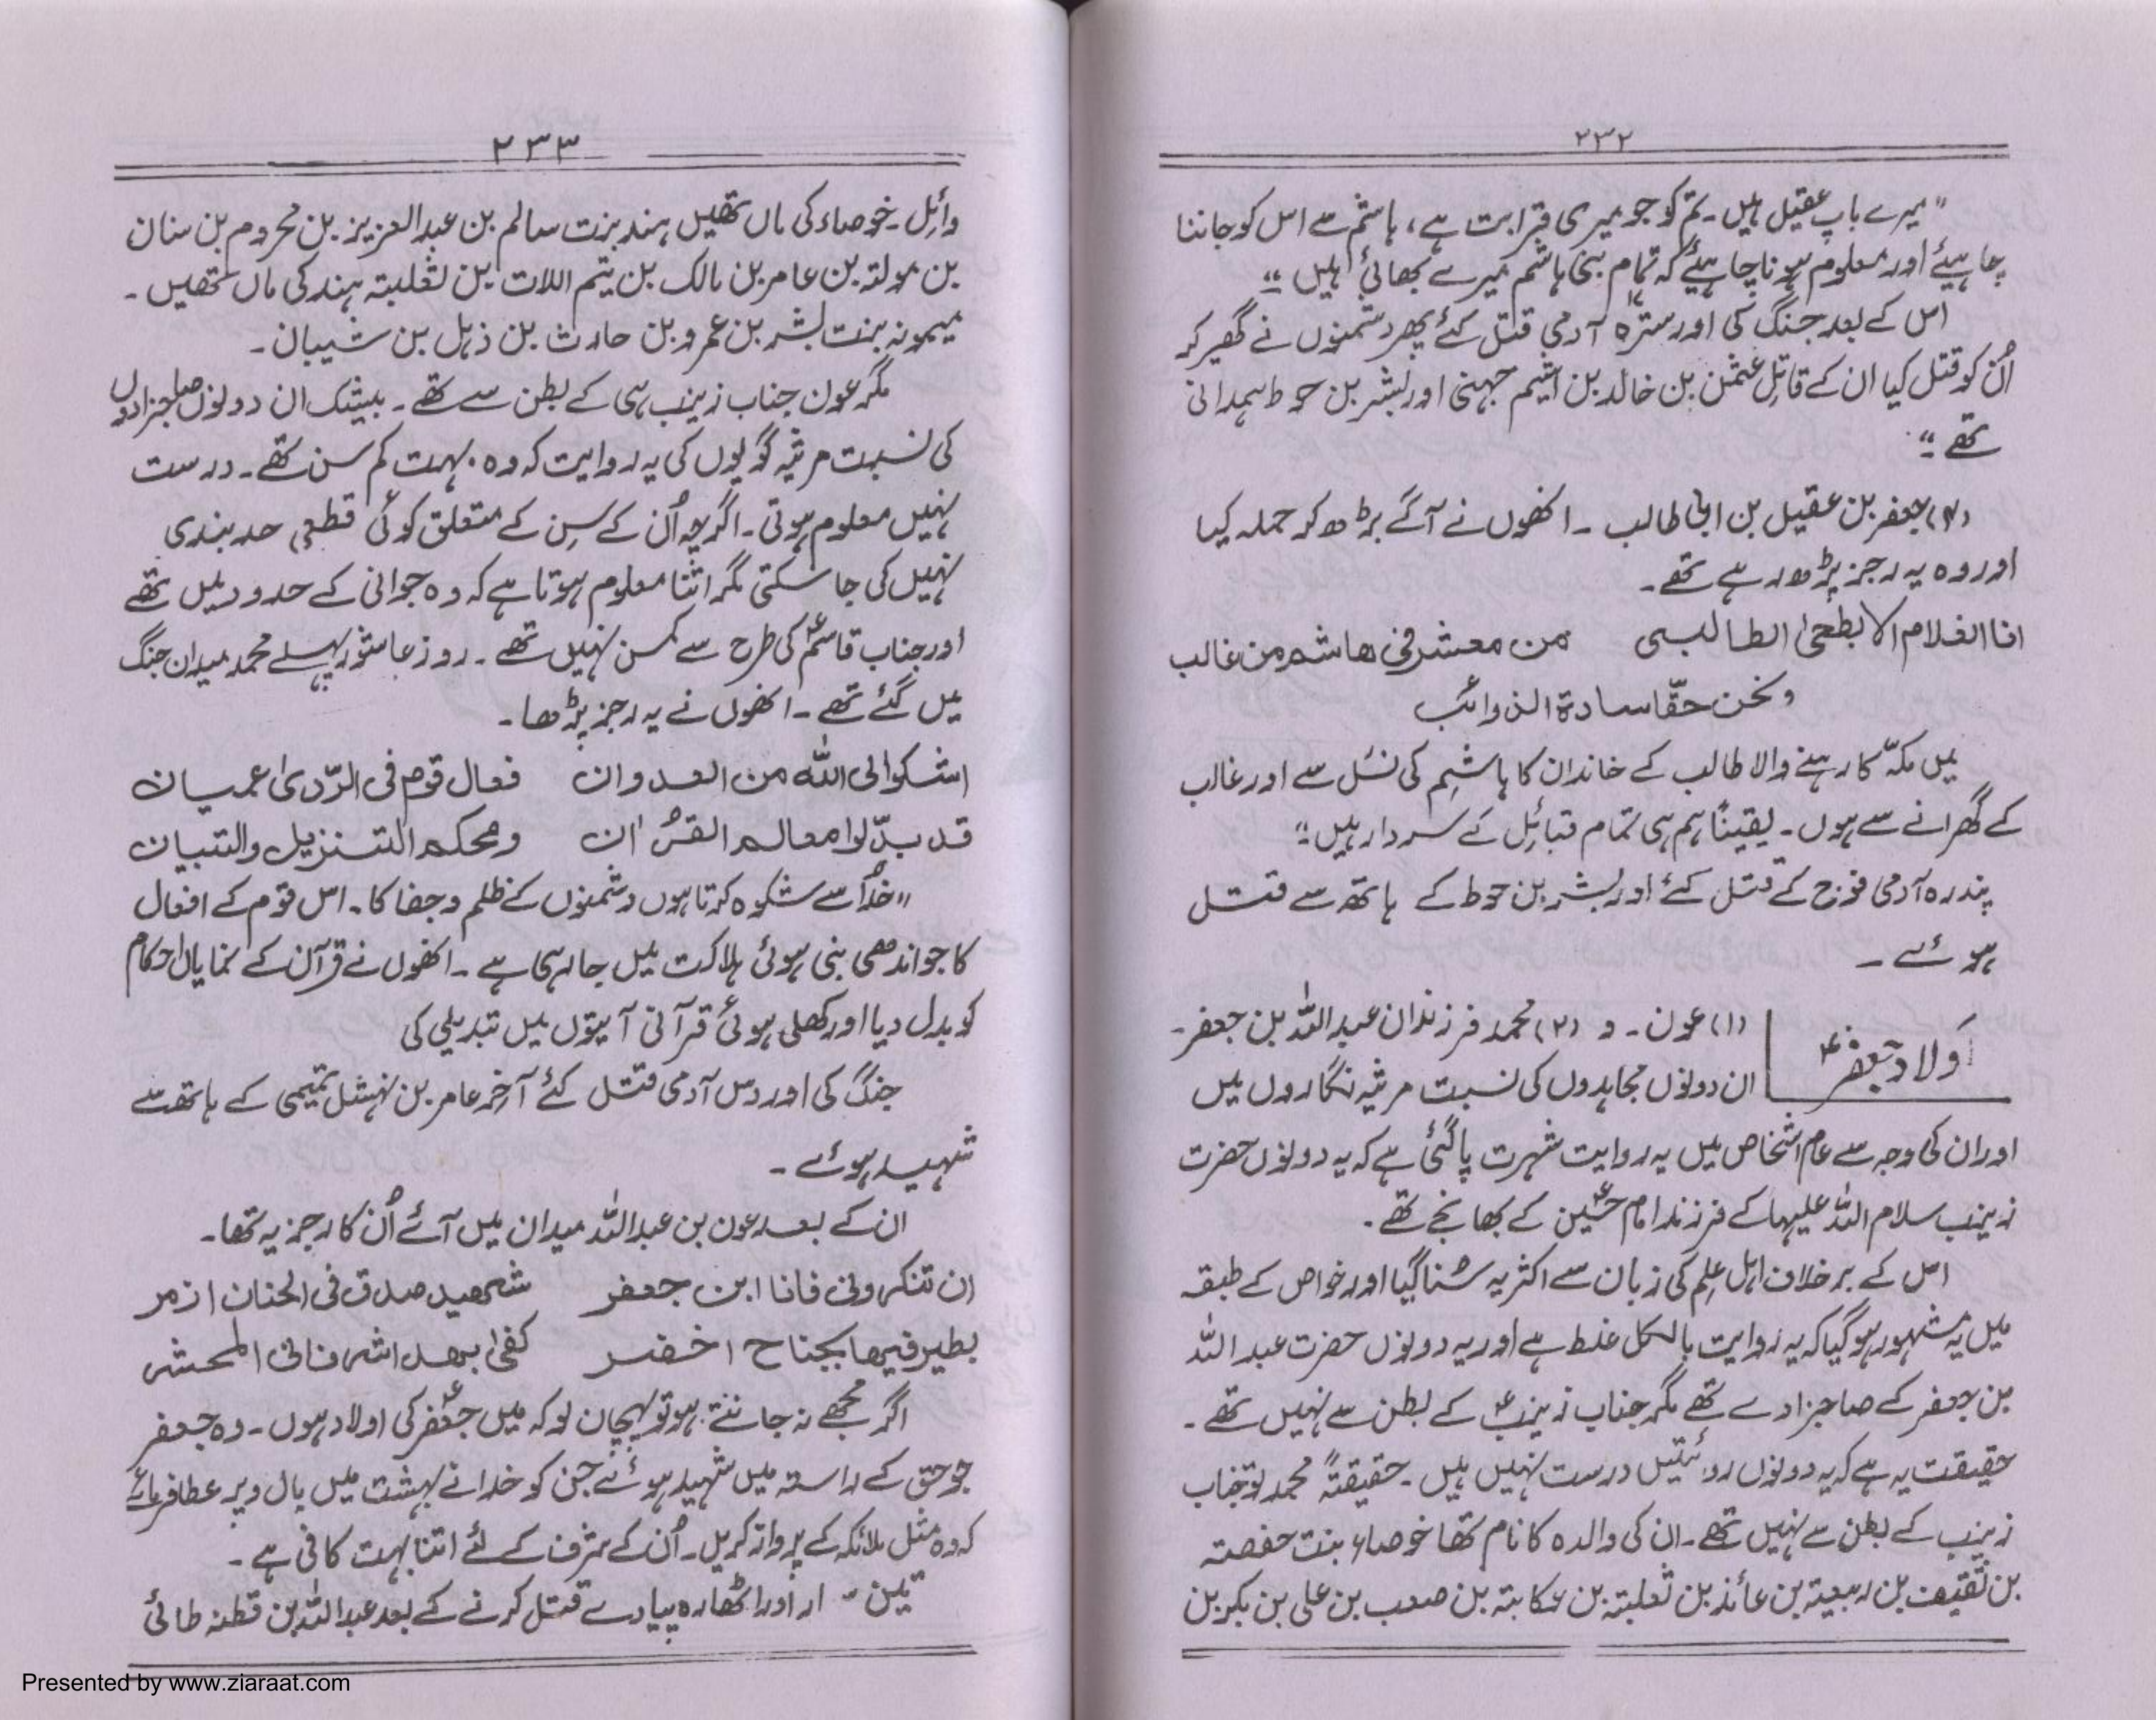 ۲۳۲
"میرے باپ عقیل ہیں۔ تم کو جو میری قرابت ہے، ہاشم سے اس کو جاننا
چاہیئے اور معلوم ہونا چاہیئے کہ تمام بنی ہاشم میرے بھائی ہیں"
اس کے بعد جنگ کی اور سترہ ۱۷ آدمی قتل کئے پھر دشمنوں نے گھیر کر
اُن کو قتل کیا ان کے قاتل عثمٰن بن خالد بن اشیم جہنی اور بشر بن حوط ہمدانی
تھے"
(۲) جعفر بن عقیل بن ابی طالب ۔ انھوں نے آگے بڑھ کر حملہ کیا
اور وہ یہ رجز پڑھ رہے تھے۔
انا الغلام الابطحیٰ الطالبی من معشر فی ھاشم من غالب
ونحن حقّا سادۃ الذوائب
میں مکّہ کا رہنے والا طالب کے خاندان کا ہاشم کی نسل سے اور غالب
کے گھرانے سے ہوں۔ یقیناً ہم ہی تمام قبائل کے سردار ہیں"
پندرہ آدمی فوج کے قتل کئے اور بشر بن حوط کے ہاتھ سے قتل
ہوئے ۔
اَولاد جعفرؑ
(۱) عون ۔ و (۲) محمد فرزندان عبداللہ بن جعفر۔
ان دونوں مجاہدوں کی نسبت مرثیہ نگاروں میں
اور ان کی وجہ سے عام اشخاص میں یہ روایت شہرت پا گئی ہے کہ یہ دونوں حضرت
زینب سلام اللہ علیہا کے فرزند امام حسینؑ کے بھانجے تھے۔
اس کے برخلاف اہل علم کی زبان سے اکثر یہ سُنا گیا اور خواص کے طبقہ
میں یہ مشہور ہو گیا کہ یہ روایت بالکل غلط ہے اور یہ دونوں حضرت عبداللہ
بن جعفر کے صاحبزادے تھے مگر جناب زینبؑ کے بطن سے نہیں تھے۔
حقیقت یہ ہے کہ یہ دونوں روائتیں درست نہیں ہیں۔ حقیقتہً محمد تو جناب
زینب کے بطن سے نہیں تھے۔ ان کی والدہ کا نام تھا خوصاء بنت حفصتہ
بن ثقیف بن ربیعتہ بن عائذ بن ثعلبتہ بن عکابتہ بن صعب بن علی بن بکر بن
۲۳۳
وائل۔ خوصاء کی ماں تھیں ہند بنت سالم بن عبدالعزیز بن محروم بن سنان
بن مولتہ بن عامر بن مالک بن تیم اللات بن ثعلبتہ ہند کی ماں تھیں۔
میمونہ بنت بشر بن عمرو بن حارث بن ذہل بن شیبان۔
مگر عون جناب زینب ہی کے بطن سے تھے۔ بیشک ان دونوں صاحبزادوں
کی نسبت مرثیہ گویوں کی یہ روایت کہ وہ بہت کم سن تھے۔ درست
نہیں معلوم ہوتی۔ اگرچہ اُن کے سِن کے متعلق کوئی قطعی حد بندی
نہیں کی جا سکتی مگر اتنا معلوم ہوتا ہے کہ وہ جوانی کے حدود میں تھے
اور جناب قاسمؑ کی طرح سے کمسن نہیں تھے۔ روز عاشور پہلے محمد میدان جنگ
میں گئے تھے۔ انھوں نے یہ رجز پڑھا۔
اشکوا الی اللہ من العدوان فعال قوم فی الرّدیٰ عمیان
قد بدّلوا معالم القرآن ومحکم التنزیل والتبیان
"خدا سے شکوہ کرتا ہوں دشمنوں کے ظلم و جفا کا۔ اس قوم کے افعال
کا جو اندھی بنی ہوئی ہلاکت میں جا رہی ہے۔ انھوں نے قرآن کے نمایاں احکام
کو بدل دیا اور کھلی ہوئی قرآنی آیتوں میں تبدیلی کی
جنگ کی اور دس آدمی قتل کئے آخر عامر بن نہشل تمیمی کے ہاتھ سے
شہید ہوئے ۔
ان کے بعد عون بن عبداللہ میدان میں آئے اُن کا رجز یہ تھا۔
ان تنکرونی فانا ابن جعفر شھید صدق فی الجنان ازھر
یطیر فیھا بجناح اخضر کفیٰ بھذا شرفا فی المحشر
اگر مجھے نہ جانتے ہو تو پہچان لو کہ میں جعفرؑ کی اولاد ہوں۔ وہ جعفر
جو حق کے راستہ میں شہید ہوئے جن کو خدا نے بہشت میں بال و پر عطا فرمائے
کہ وہ مثل ملائکہ کے پرواز کریں۔ اُن کے شرف کے لئے اتنا بہت کافی ہے۔
تین اور اٹھارہ پیادے قتل کرنے کے بعد عبداللہ بن قطنہ طائی
Presented by www.ziaraat.com